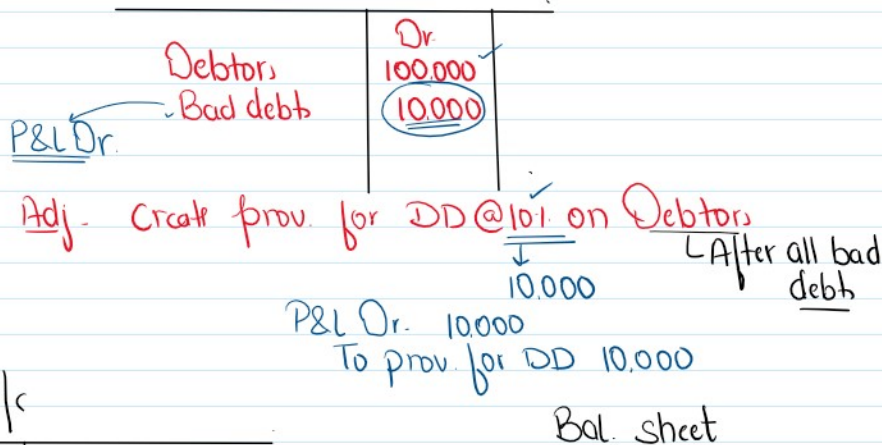 Dr.
Debtors 100.000
Bad debts 10.000
P&L Dr.
Adj - Create prov. for DD @10%. on Debtors
After all bad debts
10.000
P&L Dr. 10.000
To prov. for DD 10.000
Bal. sheet